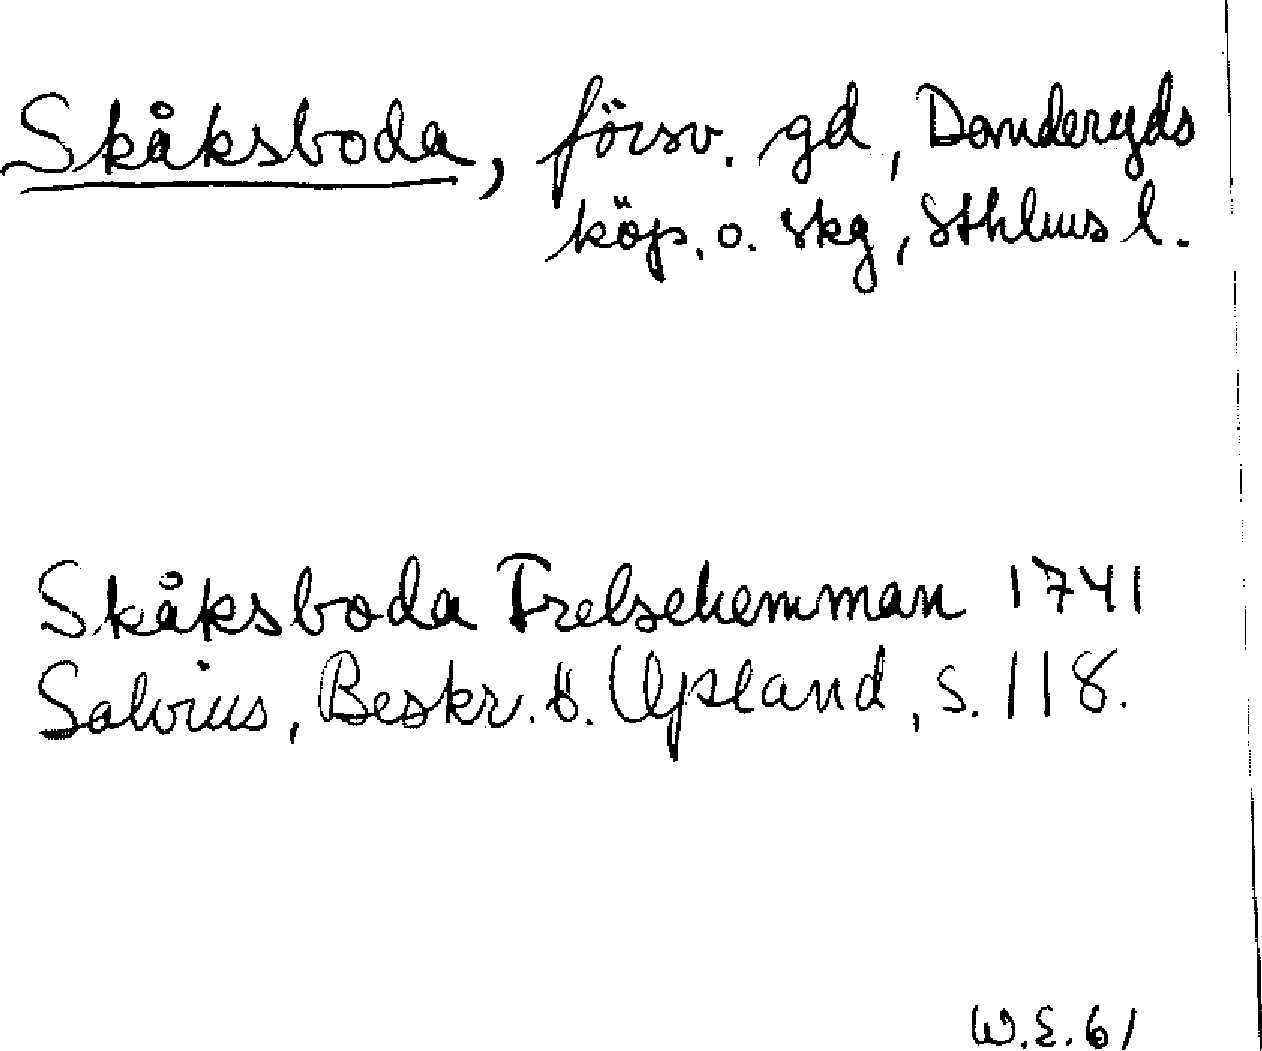 Skåksboda, försv. gd, Danderyds
köp. o. skg, Sthlms l.
Skåksboda Frelsehemman 1741
Salvius, Beskr. ö. Upland, s. 118.
W.E. 61